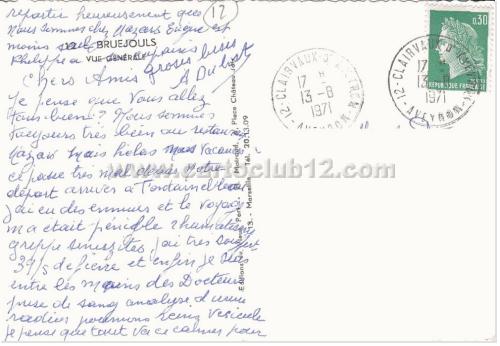 repartir heureusement que
nous sommes chez Mazars Eugne est
moins
12 BRUEJOULS
VUE GENERALE
Philippe a
Groses bises
A Dubrez
Chers Amis
Je pense que vous allez
tous bien? Nous sommes
toujours très bien au restaurant
Mazars mais helas mes vacances
ce passe très mal depuis notre
départ arriver à Fontainebleau
j'ai eu des ennuies et le voyage
m'a était pénible rhumatisme
grippe sinusites, j'ai très souffert
39/5 de fievre et enfin je suis
entre les mains des Docteurs
prise de sang analyse d'urine
radios poumons reins vesicule
je pense que tout va ce calmer pour
12
0,30
REPUBLIQUE FRANÇAISE
12-CLAIRVAUX-D'AVEYRON
17 H
13-8
1971
AVEYRON
12-CLAIRVAUX-D'AVEYRON
17 H
13-8
1971
AVEYRON
13 - Marseille - Tél. 20.13.09
www.cartoclub12.com